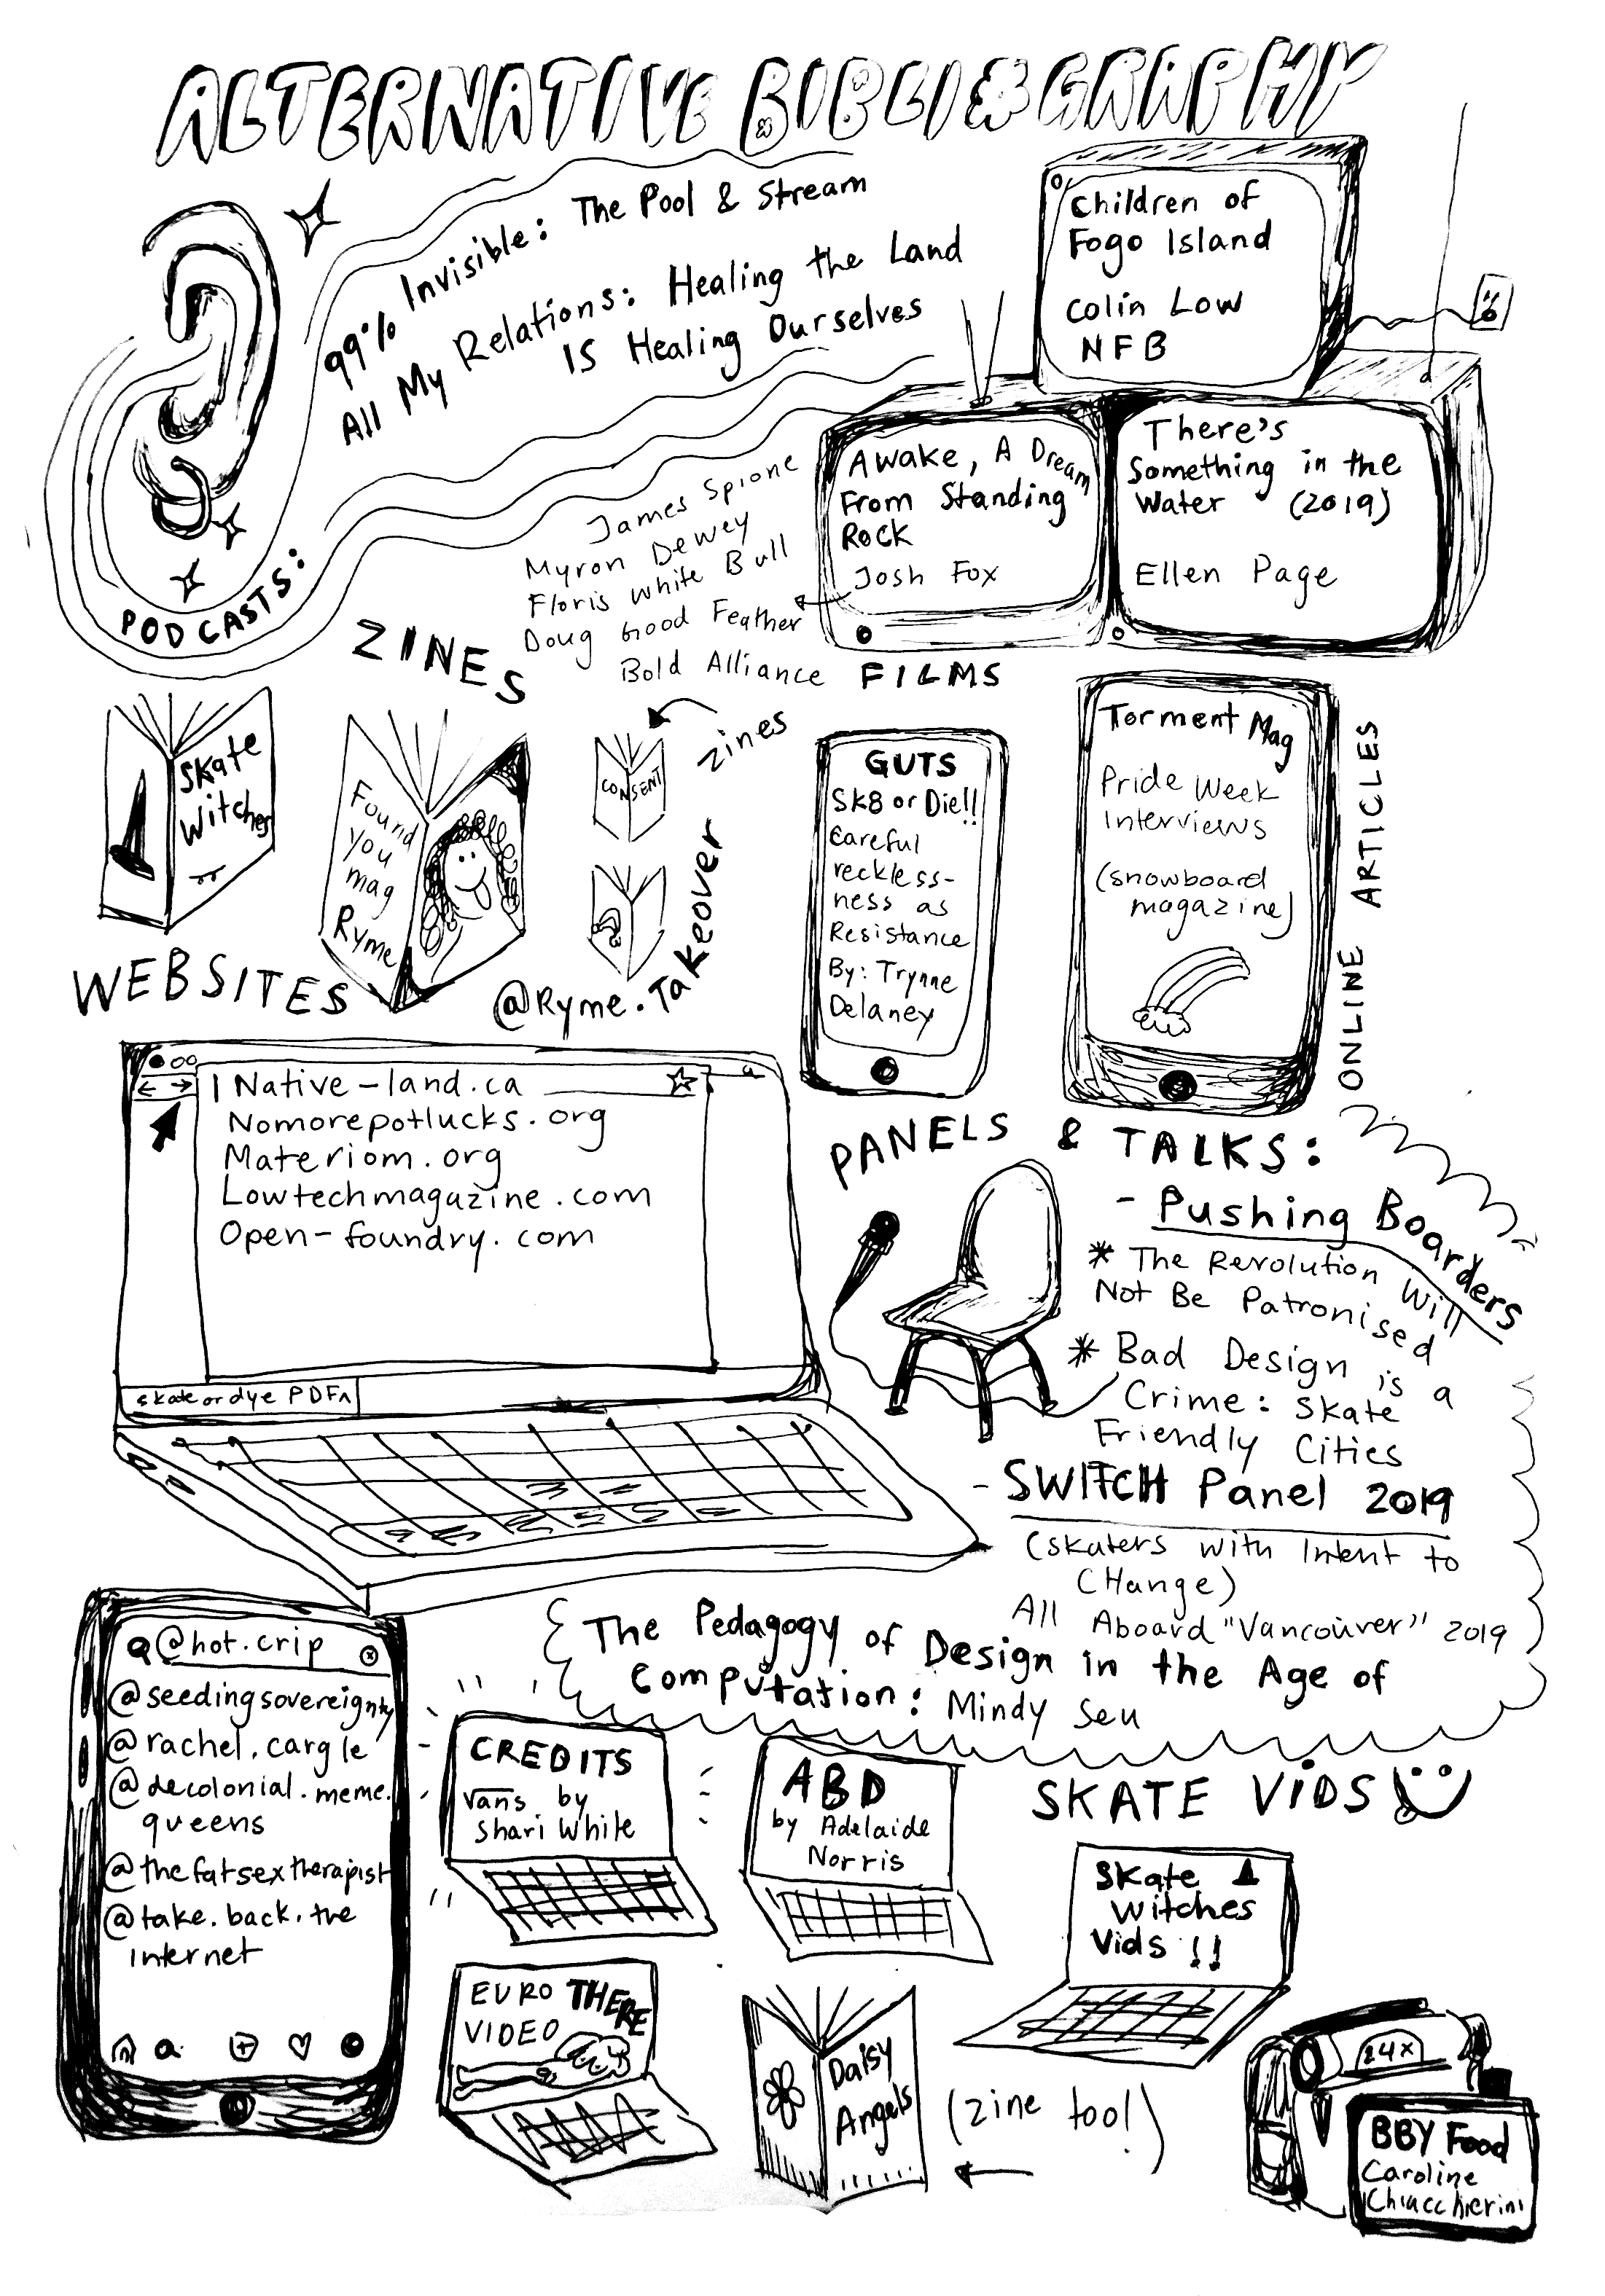 ALTERNATIVE BIBLIOGRAPHY
PODCASTS:
99% Invisible: The Pool & Stream
All My Relations: Healing the Land
IS Healing Ourselves
Children of
Fogo Island
Colin Low
NFB
Awake, A Dream
From Standing
Rock
Josh Fox
James Spione
Myron Dewey
Floris White Bull
Doug Good Feather
Bold Alliance
There's
Something in the
Water (2019)
Ellen Page
FILMS
ZINES
Skate
Witches
Found
you
mag
Ryme
CONSENT
zines
@Ryme.Takeover
GUTS
Sk8 or Die!!
Careful
reckless-
ness as
Resistance
By: Trynne
Delaney
Torment Mag
Pride Week
Interviews
(snowboard
magazine)
ONLINE ARTICLES
WEBSITES
Native-land.ca
Nomorepotlucks.org
Materiom.org
Lowtechmagazine.com
Open-foundry.com
skate or dye PDF
PANELS & TALKS:
- Pushing Boarders
* The Revolution Will
Not Be Patronised
* Bad Design is a
Crime: Skate
Friendly Cities
- SWITCH Panel 2019
(skaters with Intent to
CHange)
All Aboard "Vancouver" 2019
The Pedagogy of Design in the Age of
Computation: Mindy Seu
@hot.crip
@seedingsovereignty
@rachel.cargle
@decolonial.meme.
queens
@thefatsextherapist
@take.back.the
internet
SKATE VIDS
CREDITS
vans by
Shari White
ABD
by Adelaide
Norris
Skate
Witches
Vids !!
EURO THERE
VIDEO
Daisy
Angels
(zine too!)
24x
BBY Food
Caroline
Chiacchierini